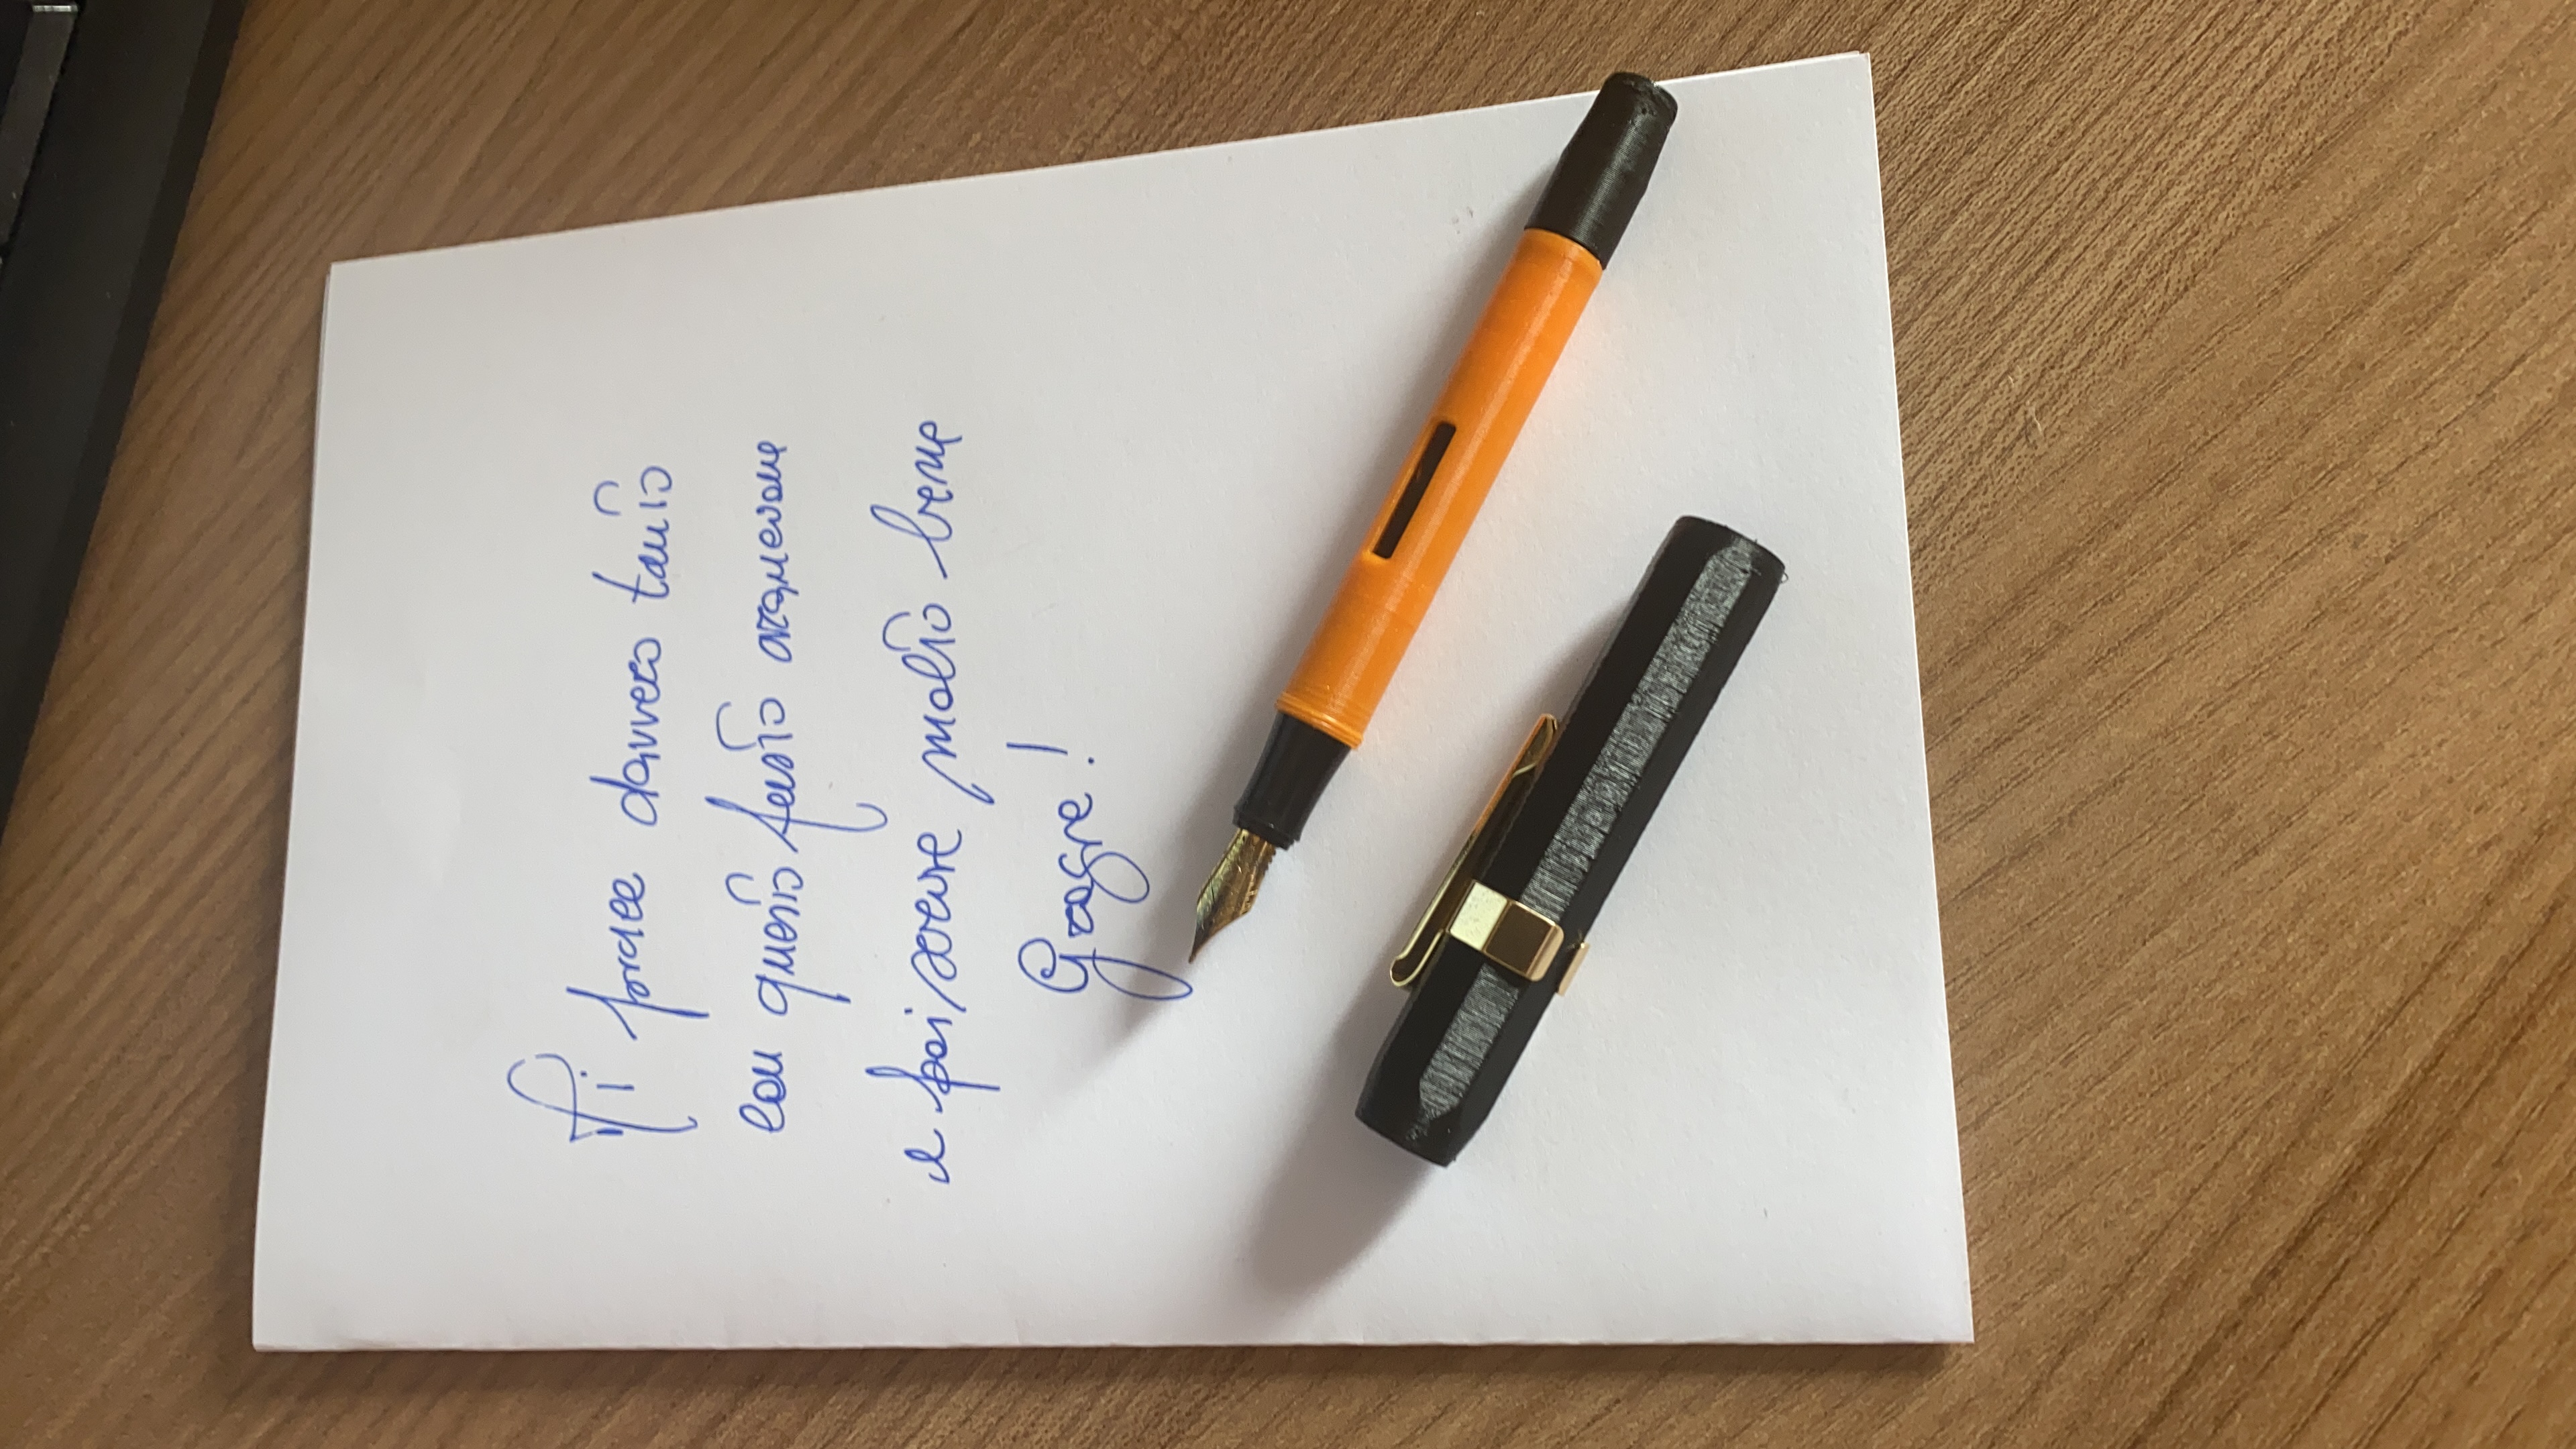 Mi piace davvero tanto
con questo fusto arancione
e poi scrive molto bene
Grazie!